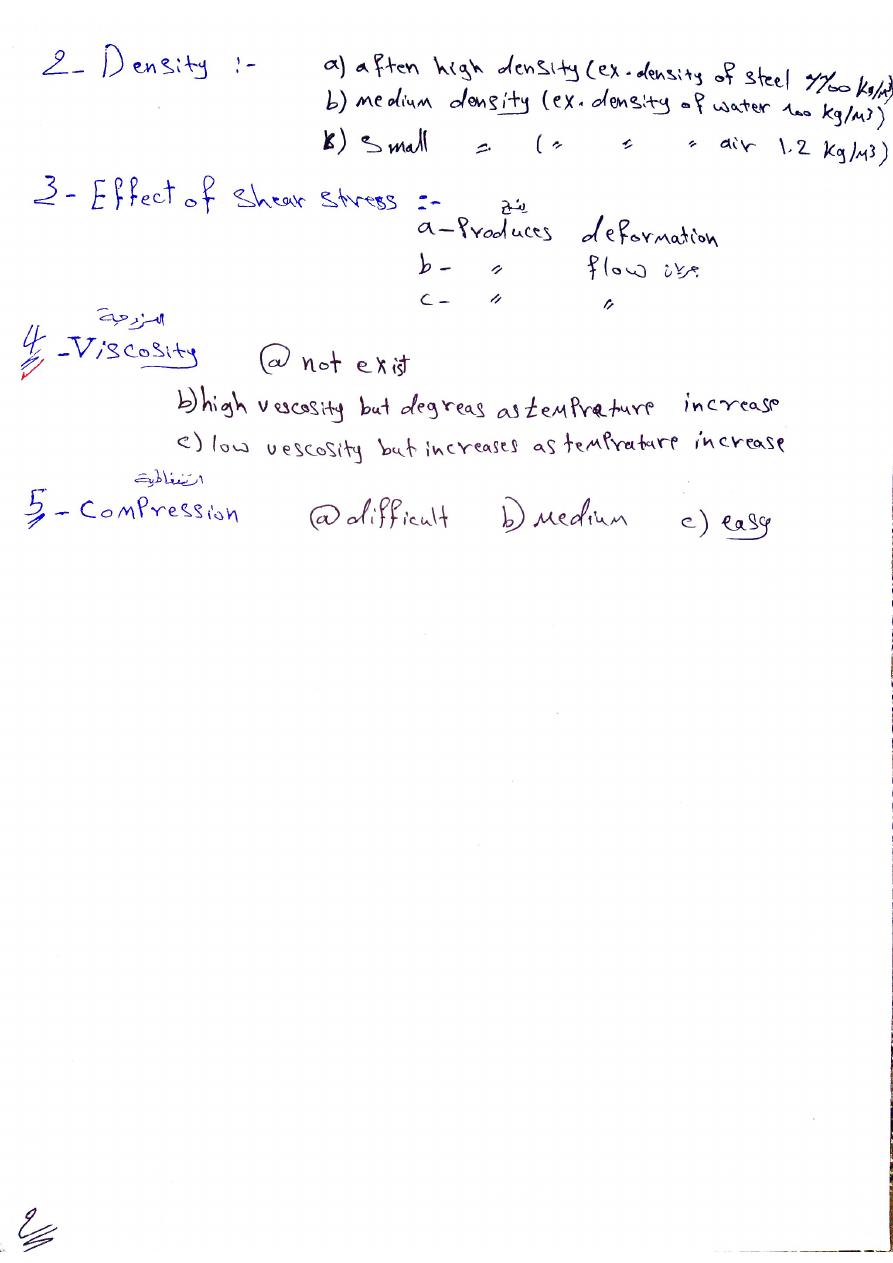 2- Density :- a) aften high density (ex. density of steel 7700 Kg/M3
b) medium density (ex. density of water 1000 Kg/M3)
c) small = (" " " air 1.2 Kg/M3)
3- Effect of shear stress :-
ينتج
a- Produces deformation
b- " flow جريان
c- " "
اللزوجة
4 - Viscosity a) not exist
b) high vescosity but degreas as temprature increase
c) low vescosity but increases as temprature increase
انضغاطية
5 - Compression a) difficult b) Medium c) easy
2